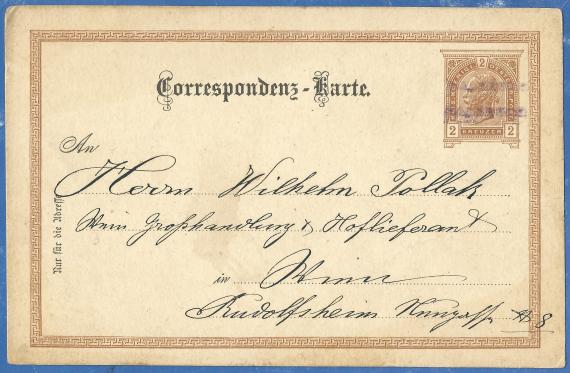 Correspondenz-Karte.
2
2 KREUZER 2
An
Herrn Wilhelm Pollak
Wein Großhandlung & Hoflieferant
in Wien
Rudolfsheim № 8
Nur für die Adresse